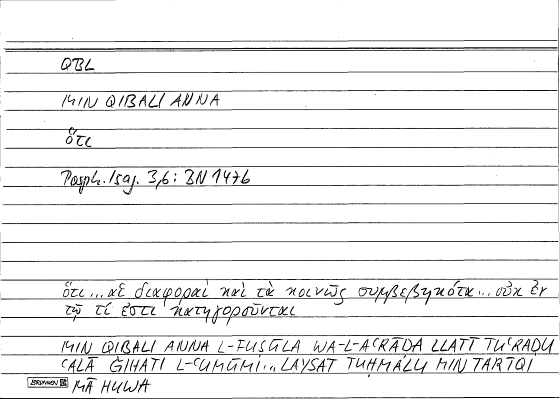 QBL
MIN QIBALI ANNA
ὅτι
Porph. Isag. 3,6: BN 147b
ὅτι...αἱ διαφοραὶ καὶ τὰ κοινῶς συμβεβηκότα...οὐκ ἐν
τῷ τί ἐστι κατηγοροῦνται
MIN QIBALI ANNA L-FUṢŪLA WA-L-AʿRĀḌA LLATĪ TUʿRAḌU
ʿALĀ ǦIHATI L-ʿUMŪMI... LAYSAT TUḤMALU MIN ṬARĪQI
BRUNNEN MĀ HUWA